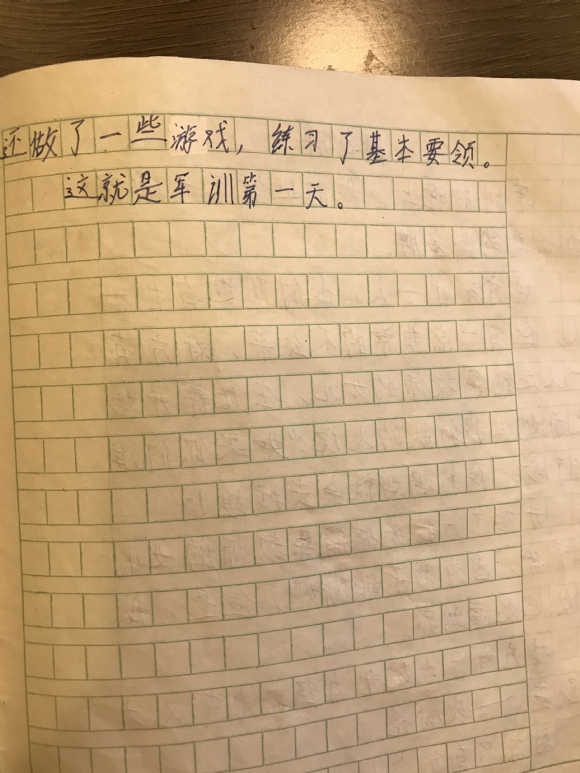 还做了一些游戏，练习了基本要领。
这就是军训第一天。